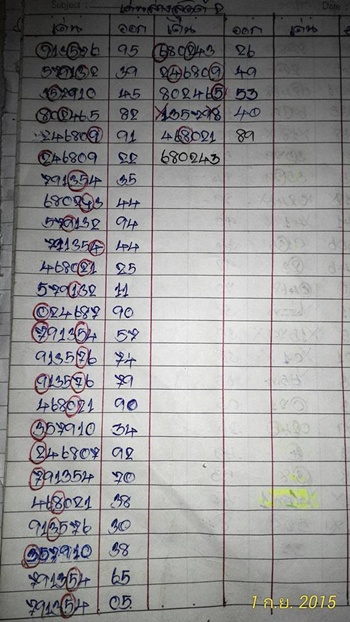 Subject Date
เด่น ออก เด่น ออก
913526 95 680243 26
579132 39 246809 49
357910 45 802465 53
802465 82 135798 40
246809 91 468021 89
246809 22 680243
791354 35
680243 44
579132 94
791354 44
468021 25
579132 11
024687 90
791354 57
913576 74
913576 79
468021 90
357910 34
246807 92
791354 70
468021 38
913576 30
357910 38
791354 65
791354 05
1 ก.ย. 2015